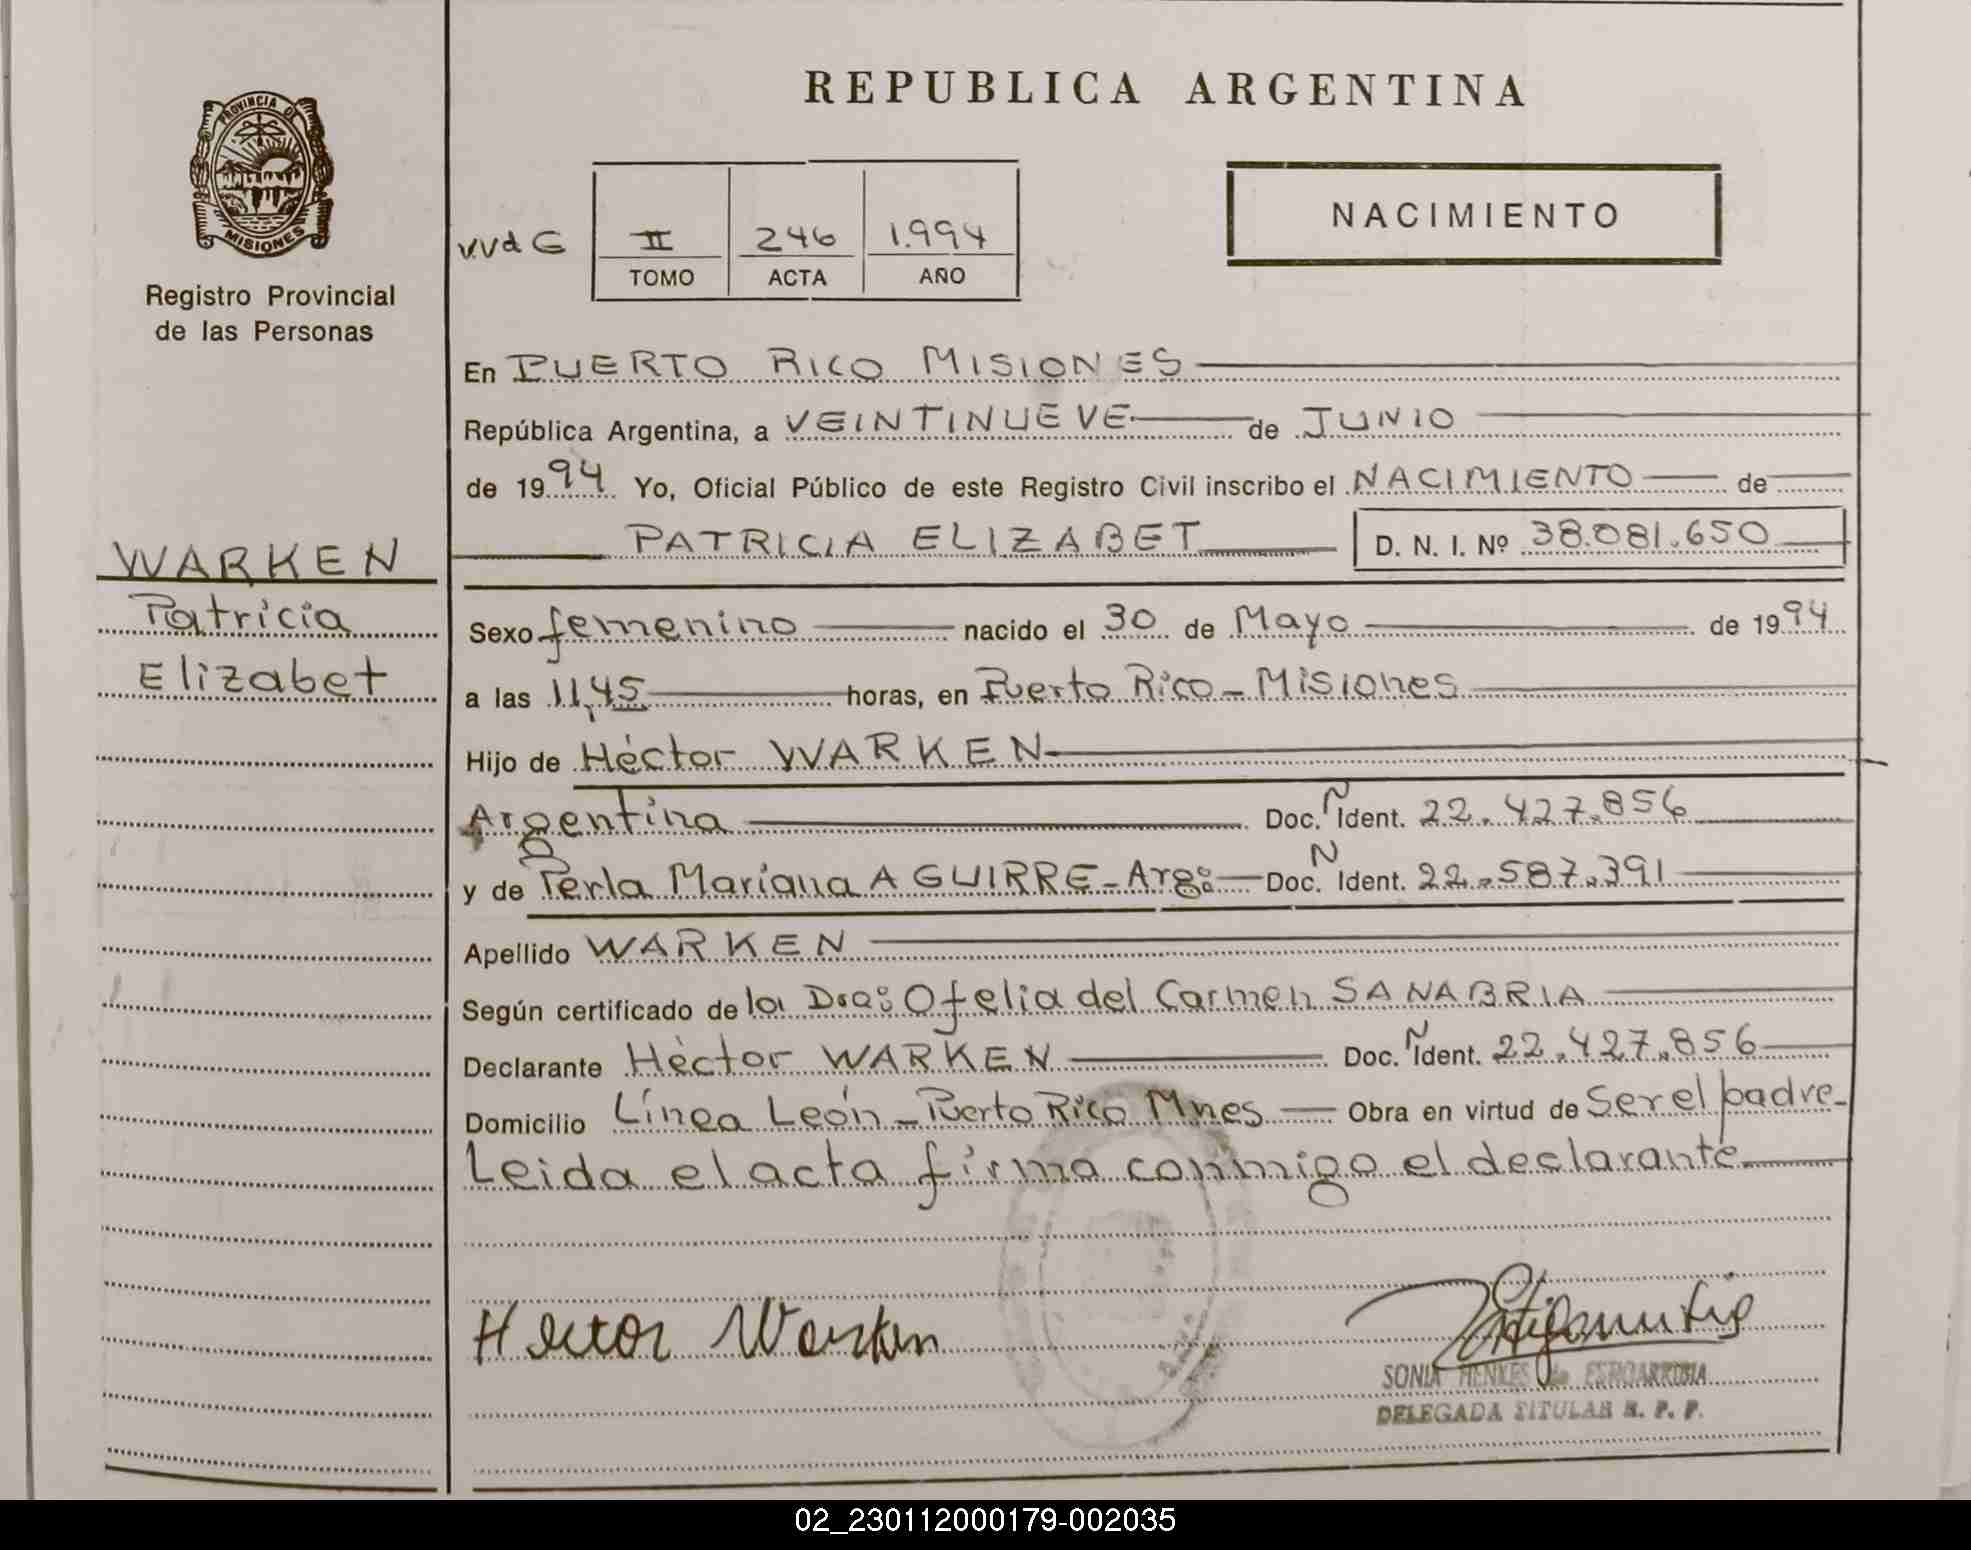 REPUBLICA ARGENTINA
PROVINCIA DE
MISIONES
Registro Provincial
de las Personas
VVdG II 246 1.994
TOMO ACTA AÑO
NACIMIENTO
WARKEN
Patricia
Elizabet
En PUERTO RICO MISIONES
República Argentina, a VEINTINUEVE de JUNIO
de 1994 Yo, Oficial Público de este Registro Civil inscribo el NACIMIENTO de
PATRICIA ELIZABET D. N. I. Nº 38.081.650
Sexo femenino nacido el 30 de Mayo de 1994
a las 11,45 horas, en Puerto Rico - Misiones
Hijo de Héctor WARKEN
Argentina Doc. Ñ Ident. 22.427.856
y de Perla Mariana AGUIRRE - Arg: Doc. N Ident. 22.587.391
Apellido WARKEN
Según certificado de la Dra: Ofelia del Carmen SANABRIA
Declarante Héctor WARKEN Doc. Ñ Ident. 22.427.856
Domicilio Línea León - Puerto Rico Mnes Obra en virtud de Ser el padre-
Leida el acta firma conmigo el declarante
Hector Warken
SONIA HENKES de
DELEGADA TITULAR R. P. P.
02_230112000179-002035